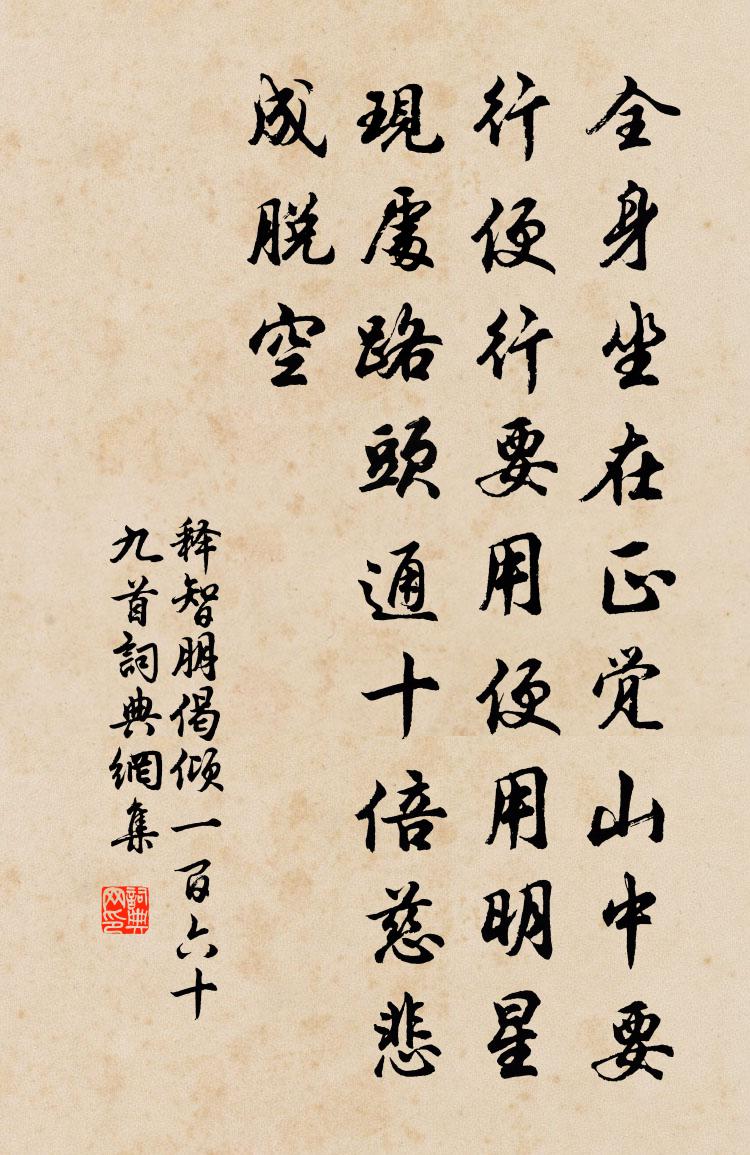 全身坐在正觉山中要
行便行要用便用明星
現處路頭通十倍慈悲
成脱空
释智朋偈倾一百六十
九首詞典網集
詞典网印